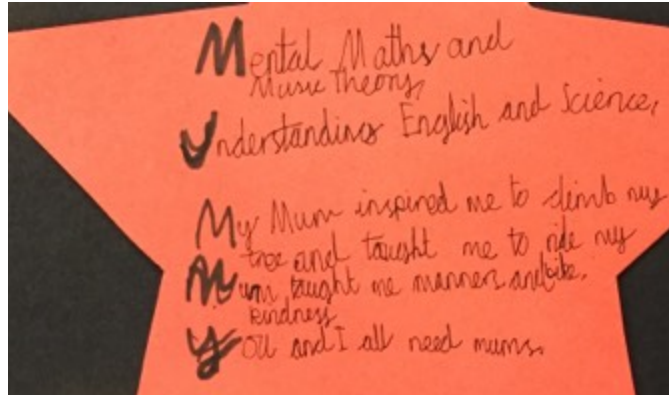 Mental Maths and
Music Theory,
Understanding English and Science,
My Mum inspired me to climb my
tree and taught me to ride my
Mum taught me manners and bike.
kindness
You and I all need mums.